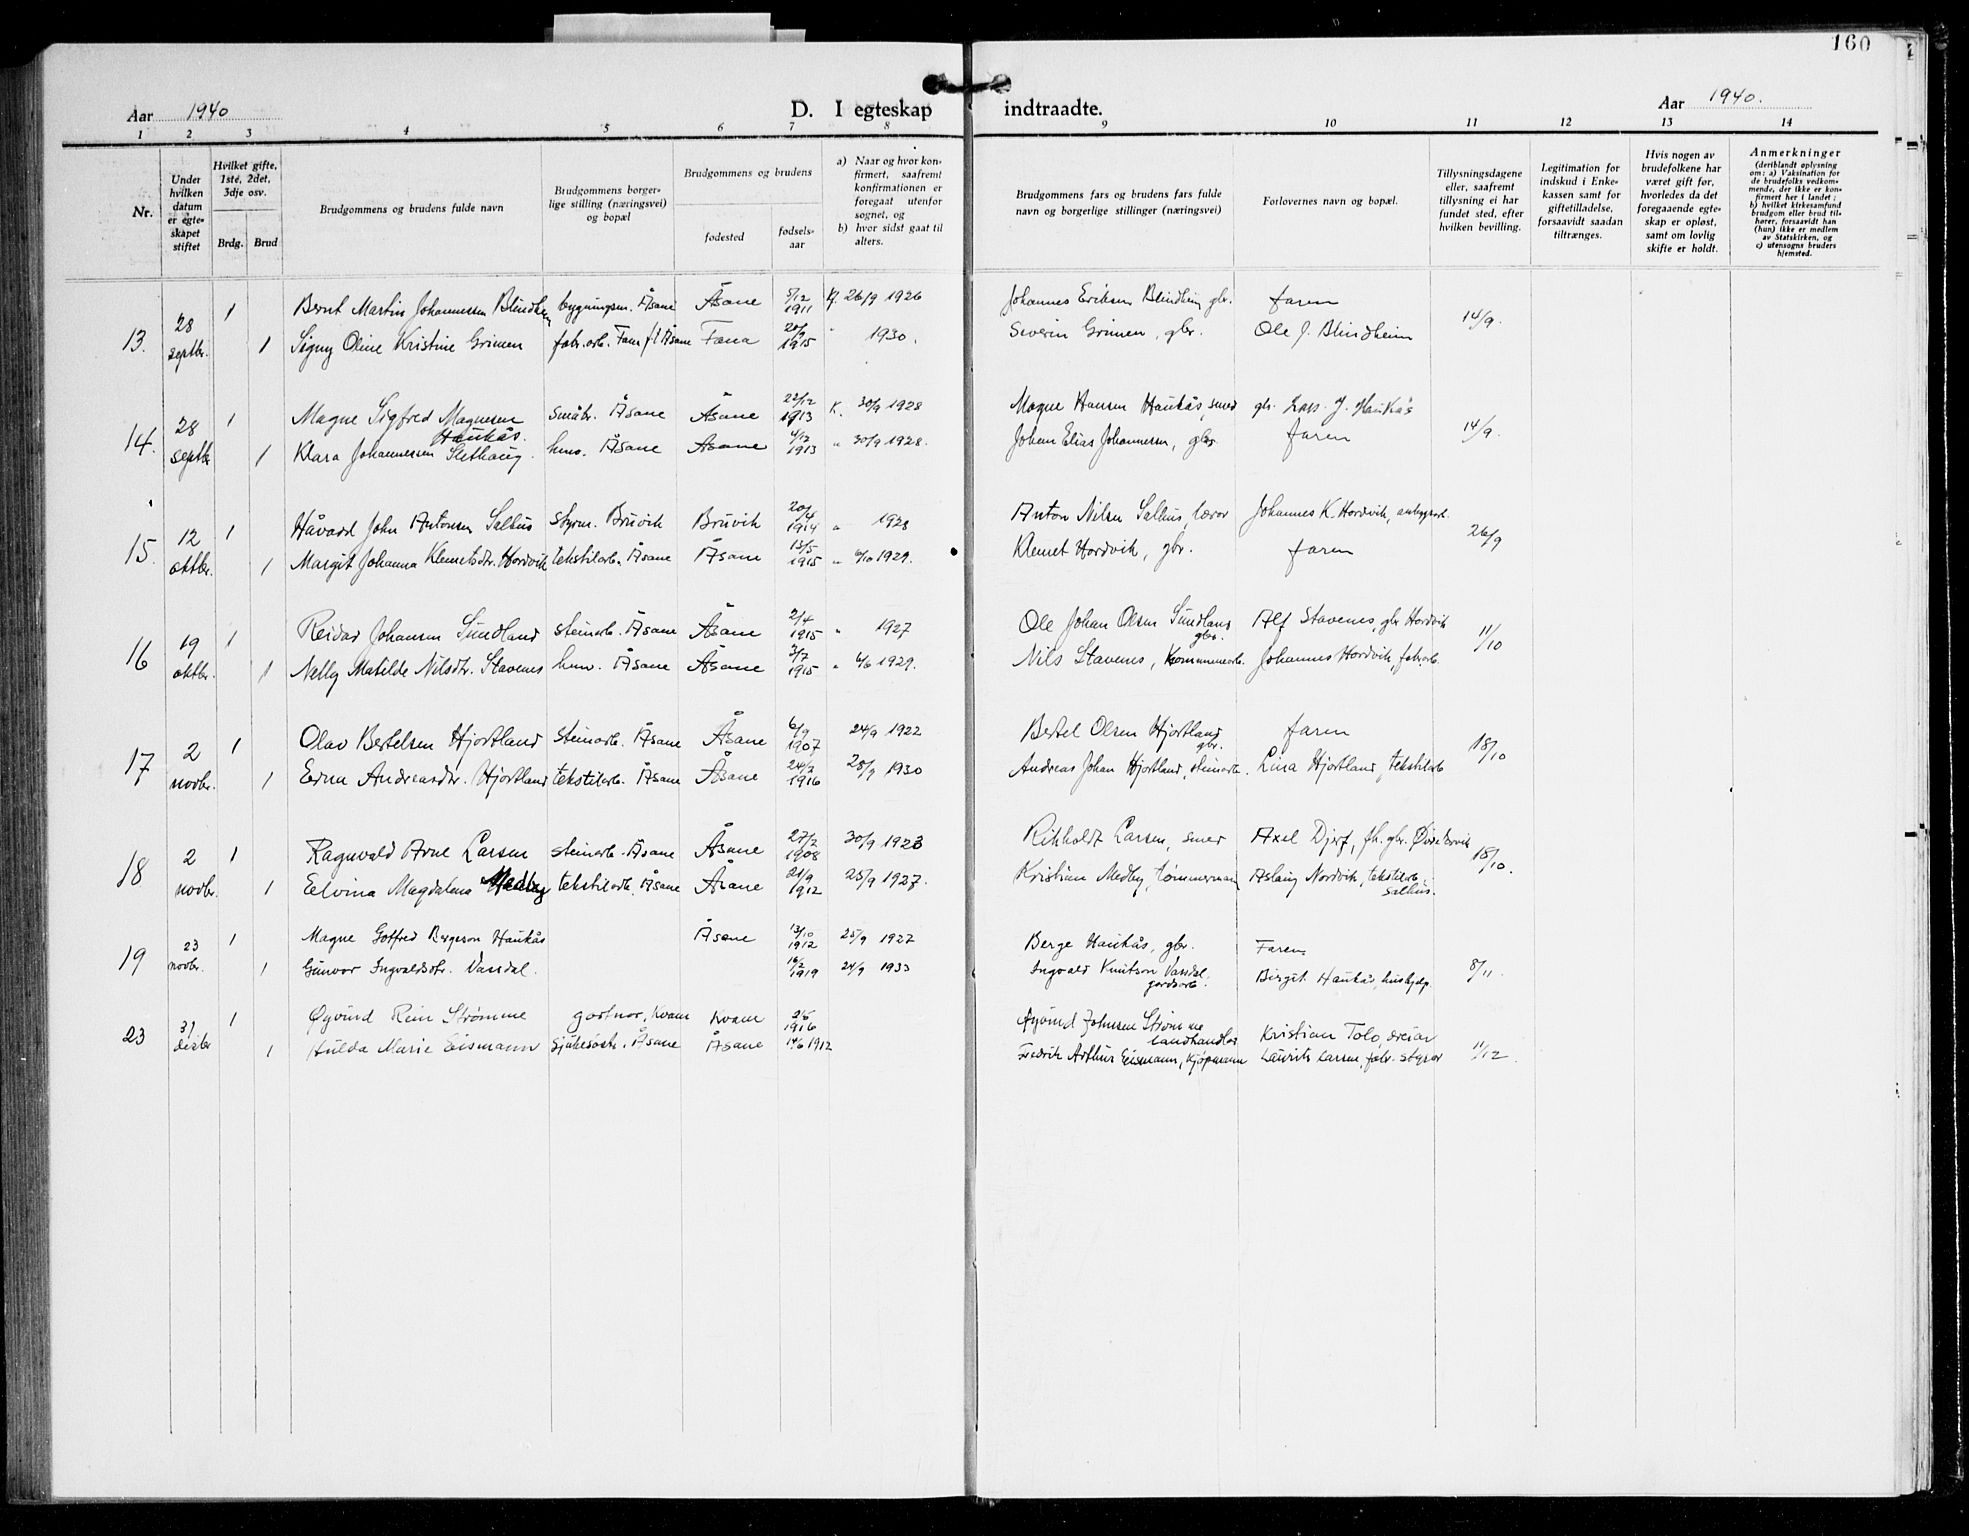 160
Aar 1940 D. I egteskap indtraadte. Aar 1940.
1 2 3 4 5 6 7 8 9 10 11 12 13 14
Nr.
Under hvilken datum er egteskapet stiftet
Hvilket gifte, 1ste, 2det, 3dje osv.
Brdg. Brud
Brudgommens og brudens fulde navn
Brudgommens borgerlige stilling (næringsvei) og bopæl
Brudgommens og brudens
fødested fødselsaar
a) Naar og hvor konfirmert, saafremt konfirmationen er foregaat utenfor sognet, og
b) hvor sidst gaat til alters.
Brudgommens fars og brudens fars fulde navn og borgerlige stillinger (næringsvei)
Forlovernes navn og bopæl.
Tillysningsdagene eller, saafremt tillysning ei har fundet sted, efter hvilken bevilling.
Legitimation for indskud i Enkekassen samt for giftetilladelse, forsaavidt saadan tiltrænges.
Hvis nogen av brudefolkene har været gift før, hvorledes da det foregaaende egteskap er opløst, samt om lovlig skifte er holdt.
Anmerkninger
(deriblandt oplysning om: a) Vaksination for de brudefolks vedkommende, der ikke er konfirmert her i landet; b) hvilket kirkesamfund brudgom eller brud tilhører, forsaavidt han (hun) ikke er medlem av Statskirken, og c) utensogns bruders hjemsted.
13. 28 septbr. 1 Bernt Martin Johannessen Blindheim bygningsm. Åsane Åsane 5/12 1911 K. 26/9 1926 Johannes Eriksen Blindheim gbr. faren 14/9.
1 Signy Oline Kristine Grimen fabr.arb. Fana Fana 1915 " 1930. Severin Grimen, gbr. Ole J. Blindheim
14. 28 septbr 1 Magne Sigfred Magnesen Haukås. småbr. Åsane Åsane 22/12 1913 K. 30/9 1928 Magne Hansen Haukås, smed gbr. Lars J. Haukås 14/9.
1 Klara Johannessen Slethaug husv. Åsane Åsane 4/12 1913 " 30/9 1928. Johan Elias Johannessen, gbr. faren
15. 12 oktbr. 1 Håvard John Antonsen Salhus styrm. Bruvik Bruvik 20/4 1914 " 1928 Anton Nilsen Salhus, lærer Johannes K. Hordvik 26/9
1 Margit Johanna Klemetsdtr. Hordvik tekstilarb. Åsane Åsane 13/5 1915 " 6/10 1929. Klemet Hordvik, gbr. faren
16 19 oktbr. 1 Reidar Johansen Sundland steinarb. Åsane Åsane 2/4 1915 " 1927 Ole Johan Olsen Sundland gbr. Alf Stavenes, gbr Hordvik 11/10
1 Nelly Matilde Nilsdtr. Stavenes husv. Åsane Åsane 3/7 1915 " 6/6 1929. Nils Stavenes, kommunearb. Johannes Hordvik, fabr.arb.
17 2 novbr. 1 Olav Bertelsen Hjortland steinarb. Åsane Åsane 6/9 1907 24/9 1922 Bertel Olsen Hjortland gbr. faren 18/10
1 Erna Andreasdtr. Hjortland tekstilarb. Åsane Åsane 1916 28/9 1930 Andreas Johan Hjortland, steinarb. Lina Hjortland, tekstilarb
18 2 novbr. 1 Ragnvald Arne Larsen steinarb. Åsane Åsane 27/2 1908 30/9 1923 Rikholdt Larsen, smed Axel Djerf, fh. gbr. 18/10.
1 Edvina Magdalena Medby tekstilarb. Åsane Åsane 21/9 1912 25/9 1927. Kristian Medby, tømmermann Aslaug Nordvik, tekstilarb. Salhus.
19 23 novbr. 1 Magne Gotfred Bergeson Haukås Åsane 13/10 1912 25/9 1927 Berge Haukås, gbr. Faren
1 Gunvor Ingvaldsdtr. Vassdal. 16/2 1919 24/9 1933 Ingvald Knutson Vassdal, gardsarb. Birgit Haukås, hushjelp 8/11.
23 31 desbr 1 Øyvind Rein Strømme gartner, Kvam Kvam 1916 Øyvind Johnsen Strømme landhandlar Kristian Tolo, dreiar
1 Hulda Marie Eismann Sjukesøst. Åsane Åsane 14/6 1912 Fredrik Arthur Eismann, kjøpmann Laurits Larsen, fabr. styrar 11/12.